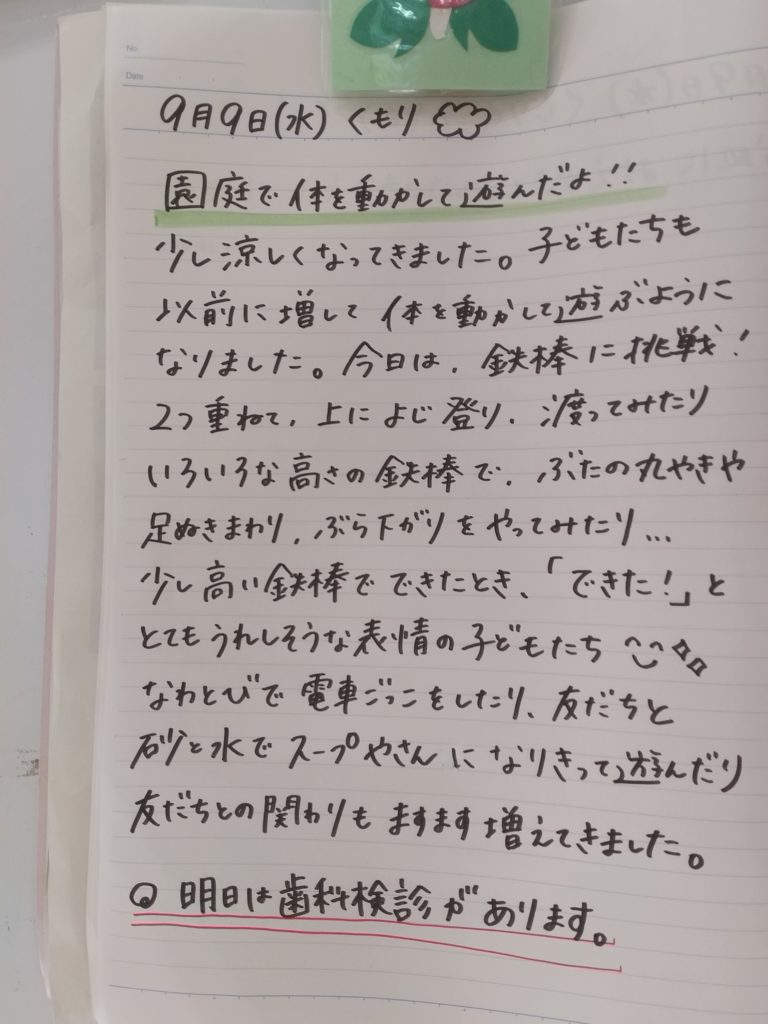 No.
Date
9月9日(水) くもり
園庭で体を動かして遊んだよ!!
少し涼しくなってきました。子どもたちも
以前に増して体を動かして遊ぶように
なりました。今日は、鉄棒に挑戦!
2つ重ねて、上によじ登り、渡ってみたり
いろいろな高さの鉄棒で、ぶたの丸やきや
足ぬきまわり、ぶら下がりをやってみたり...
少し高い鉄棒でできたとき、「できた!」と
とてもうれしそうな表情の子どもたち
なわとびで電車ごっこをしたり、友だちと
砂と水でスープやさんになりきって遊んだり
友だちとの関わりもますます増えてきました。
明日は歯科検診があります。